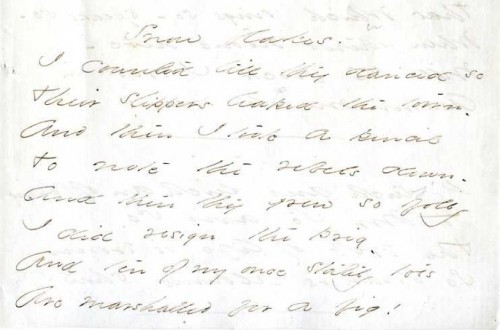 Snow flakes.
I counted till they danced so
Their slippers leaped the town -
And then I took a pencil
To note the rebels down -
And then they grew so jolly
I did resign the prig -
And ten of my once stately toes
Are marshalled for a jig!